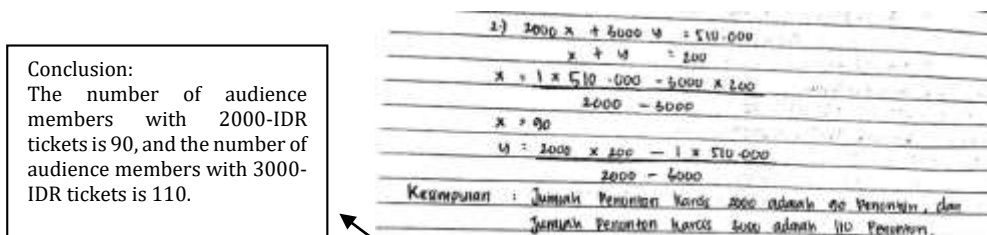 Conclusion:
The number of audience
members with 2000-IDR
tickets is 90, and the number of
audience members with 3000-
IDR tickets is 110.
2.) 2000 x + 3000 y = 510.000
x + y = 200
x = 1 x 510.000 - 3000 x 200
2000 - 3000
x = 90
y = 2000 x 200 - 1 x 510.000
2000 - 3000
Kesimpulan : Jumlah Penonton Karcis 2000 adalah 90 Penonton, dan
Jumlah Penonton Karcis 3000 adalah 110 Penonton.